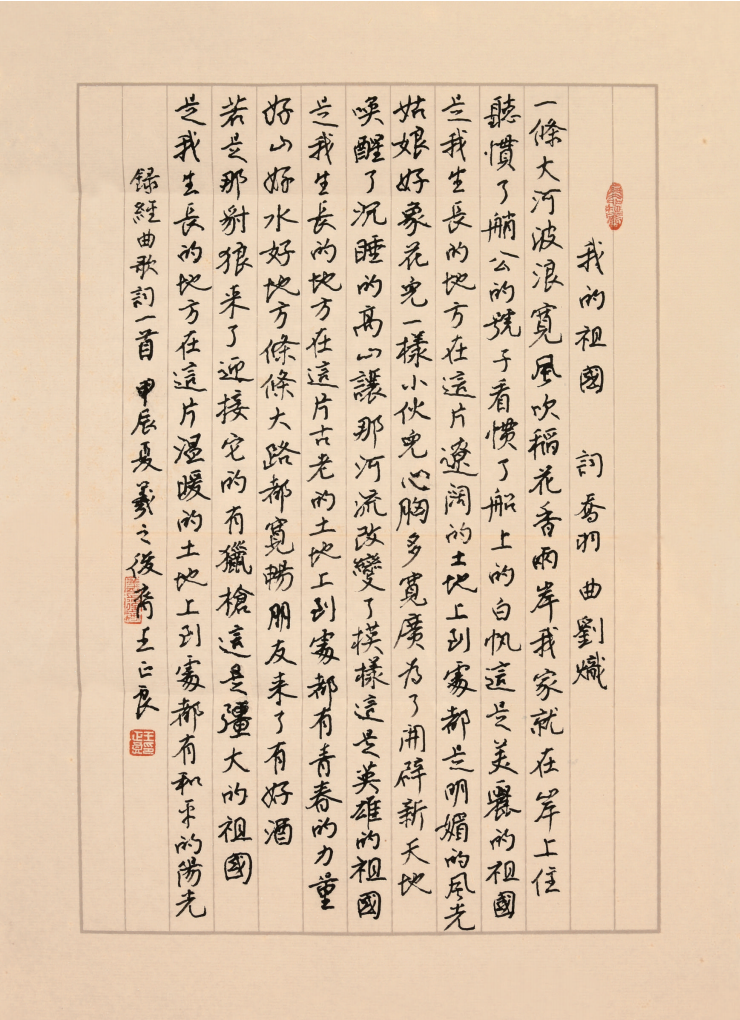 我的祖國 詞喬羽 曲劉熾
一條大河波浪寬風吹稻花香兩岸我家就在岸上住
聽慣了艄公的號子看慣了船上的白帆這是美麗的祖國
是我生長的地方在這片遼闊的土地上到處都是明媚的風光
姑娘好象花兒一樣小伙兒心胸多寬廣為了開辟新天地
喚醒了沉睡的高山讓那河流改變了模樣這是英雄的祖國
是我生長的地方在這片古老的土地上到處都有青春的力量
好山好水好地方條條大路都寬暢朋友來了有好酒
若是那豺狼來了迎接它的有獵槍這是彊大的祖國
是我生長的地方在這片溫暖的土地上到處都有和平的陽光
録經曲歌詞一首 甲辰夏羲之後裔王正良
王正良印